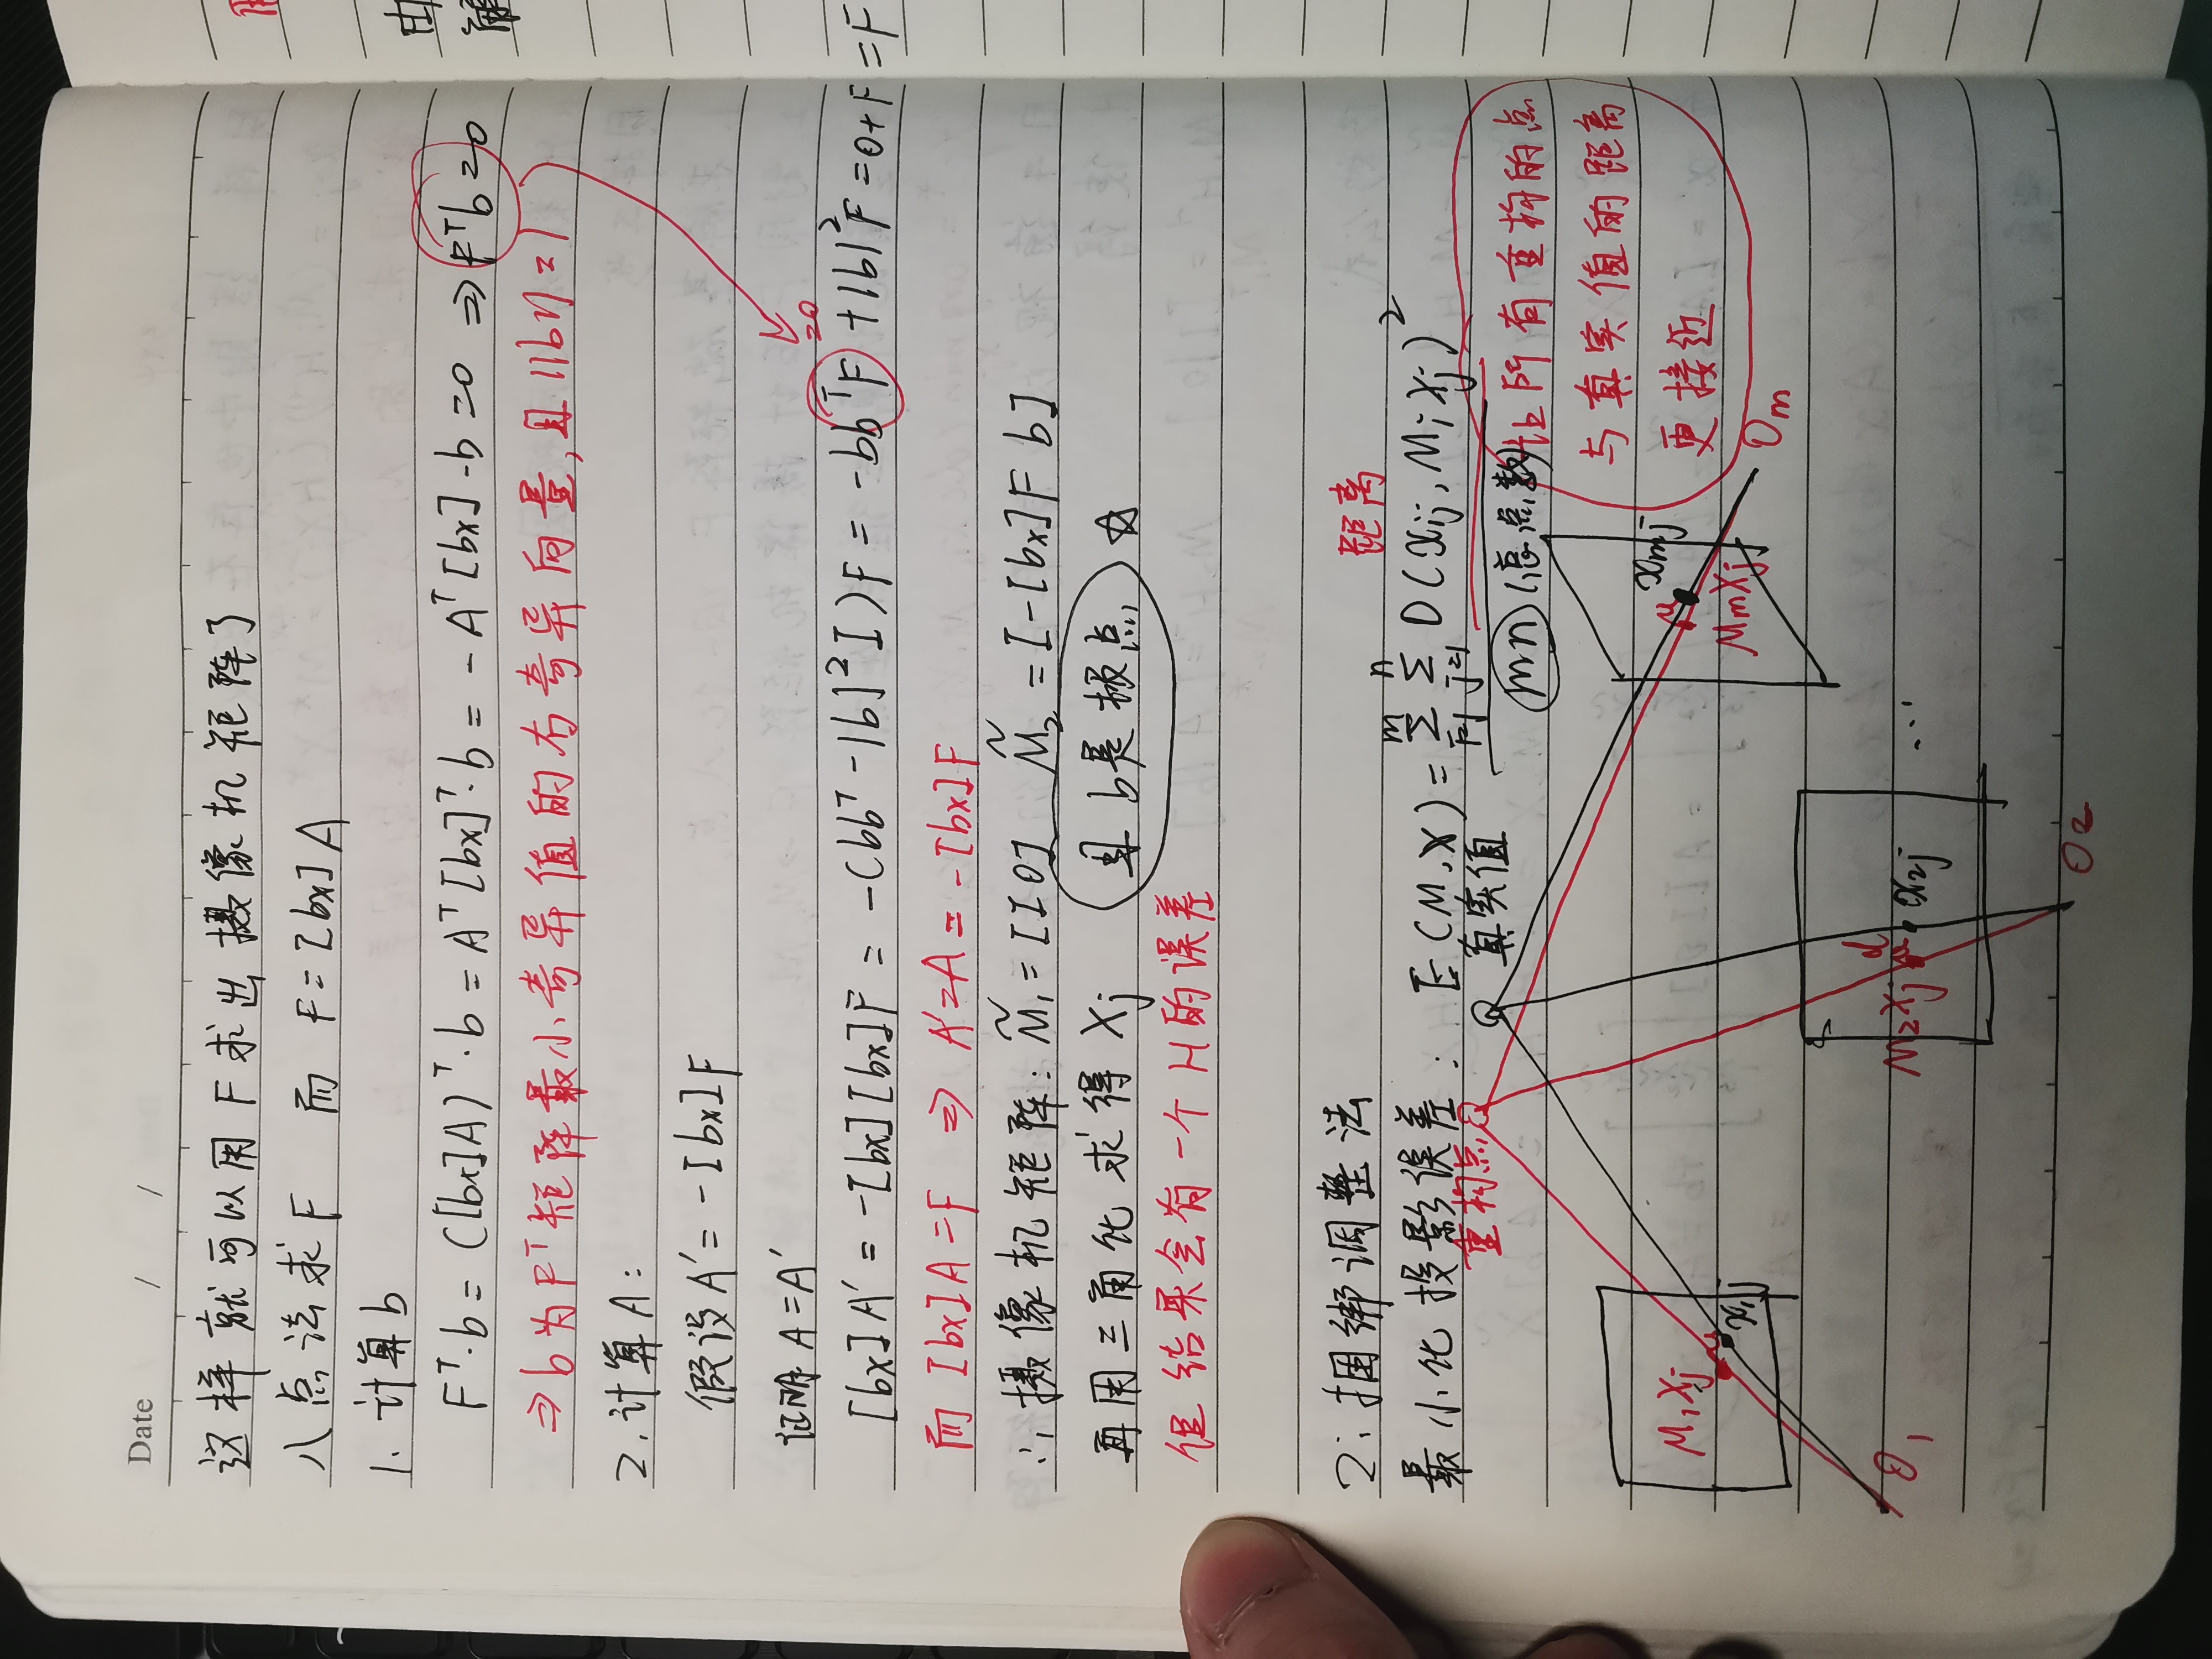 Date / /
这样就可以用F求出摄像机矩阵了
八点法求F 而 F=[bx]A
1. 计算b
Fᵀ·b=([bx]A)ᵀ·b=Aᵀ[bx]ᵀ·b=-Aᵀ[bx]·b=0 ⇒ Fᵀb=0
⇒b为Fᵀ矩阵最小奇异值的右奇异向量,且||b||=1
2. 计算A:
假设A'=-[bx]F
证明A=A'
=0
[bx]A'=-[bx][bx]F=-(bbᵀ-|b|²I)F=-bbᵀF+|b|²F=0+F=F
而[bx]A=F ⇒ A'=A=-[bx]F
∴摄像机矩阵: M̃₁=[I 0] M̃₂=[-[bx]F b]
再用三角化求得Xj 且b是极点 ☆
但结果会有一个H的误差
距离
2:捆绑调整法
最小化投影误差: E(M,X)=mΣi=1 nΣj=1 D(xij,MiXj)²
重构点 真实值 mn(总点数) 让所有重构的点
与真实值的距离
更接近
M₁Xj x₁j O₁
M₂Xj d x₂j O₂
...
xmj MmXj Om